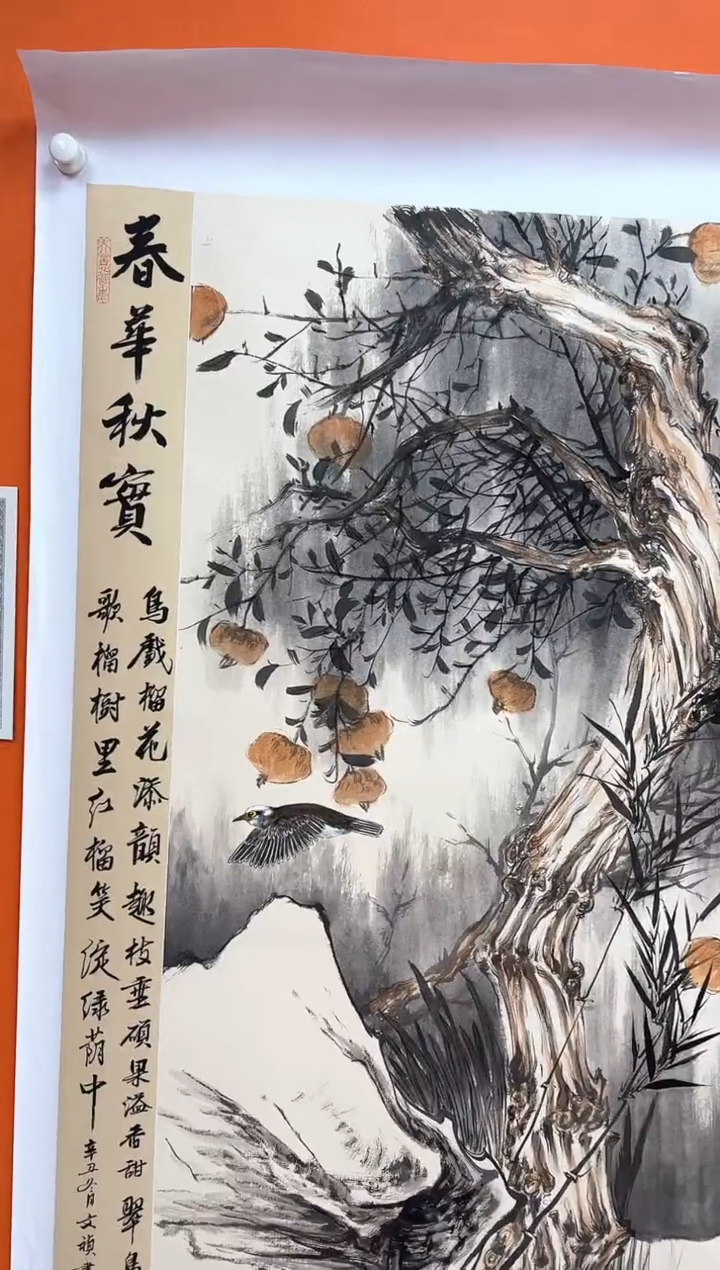 春華秋實
鳥戲榴花添韻趣枝垂碩果溢香甜翠鳥
歌榴樹里红榴笑綻绿荫中
辛丑冬月文禎書